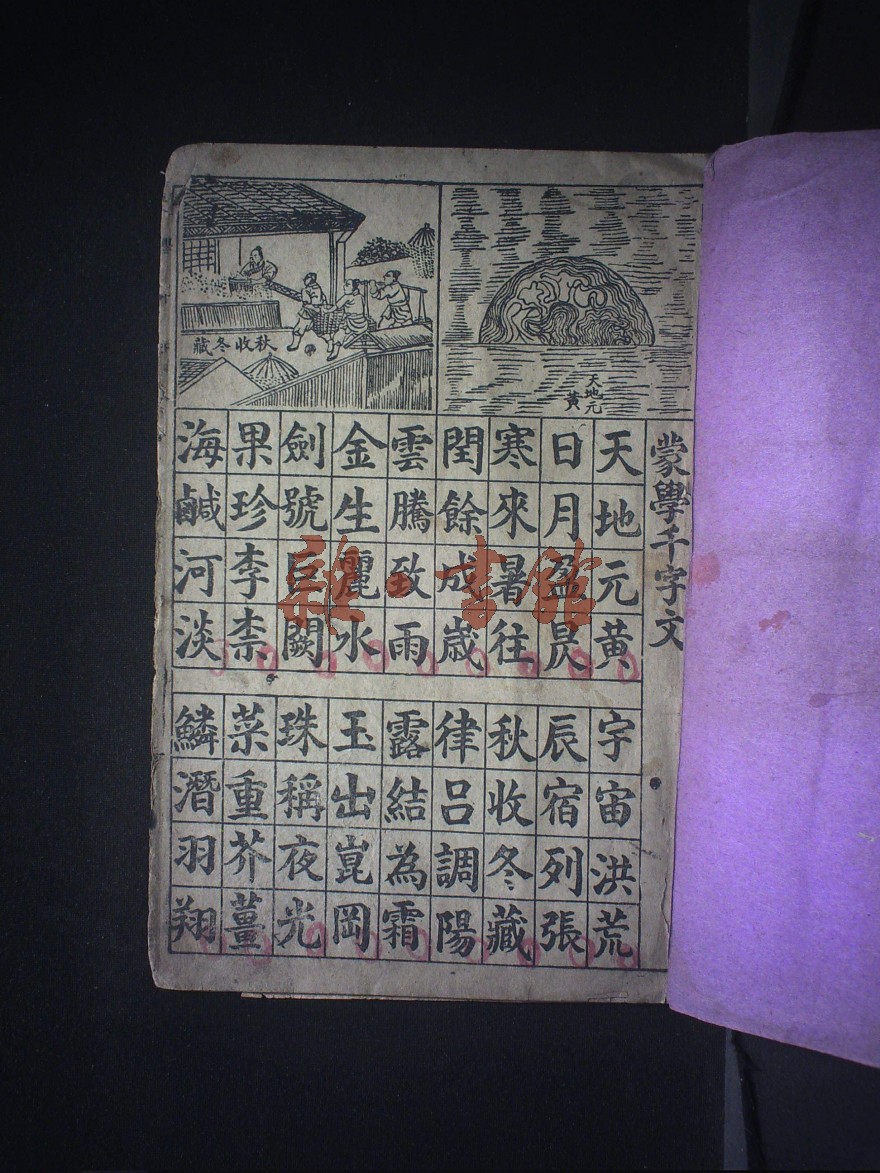 蒙學千字文
天地元黃
秋收冬藏
天地元黃
宇宙洪荒
日月盈昃
辰宿列張
寒來暑往
秋收冬藏
閏餘成歳
律呂調陽
雲騰致雨
露結為霜
金生麗水
玉出崑岡
劍號巨闕
珠稱夜光
果珍李柰
菜重芥薑
海鹹河淡
鱗潛羽翔
雜·書館